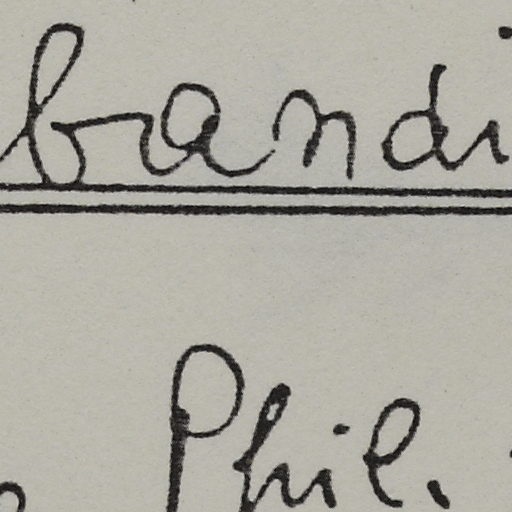 bandi
Phil.